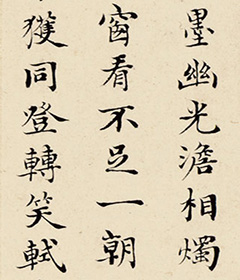 墨幽光澹相燭
窗看不足一朝
獲同登轉笑軾